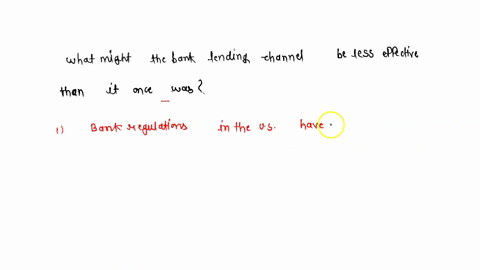 what might the bank lending channel be less effective
than it once was?
1) Bank regulations in the U.S. have